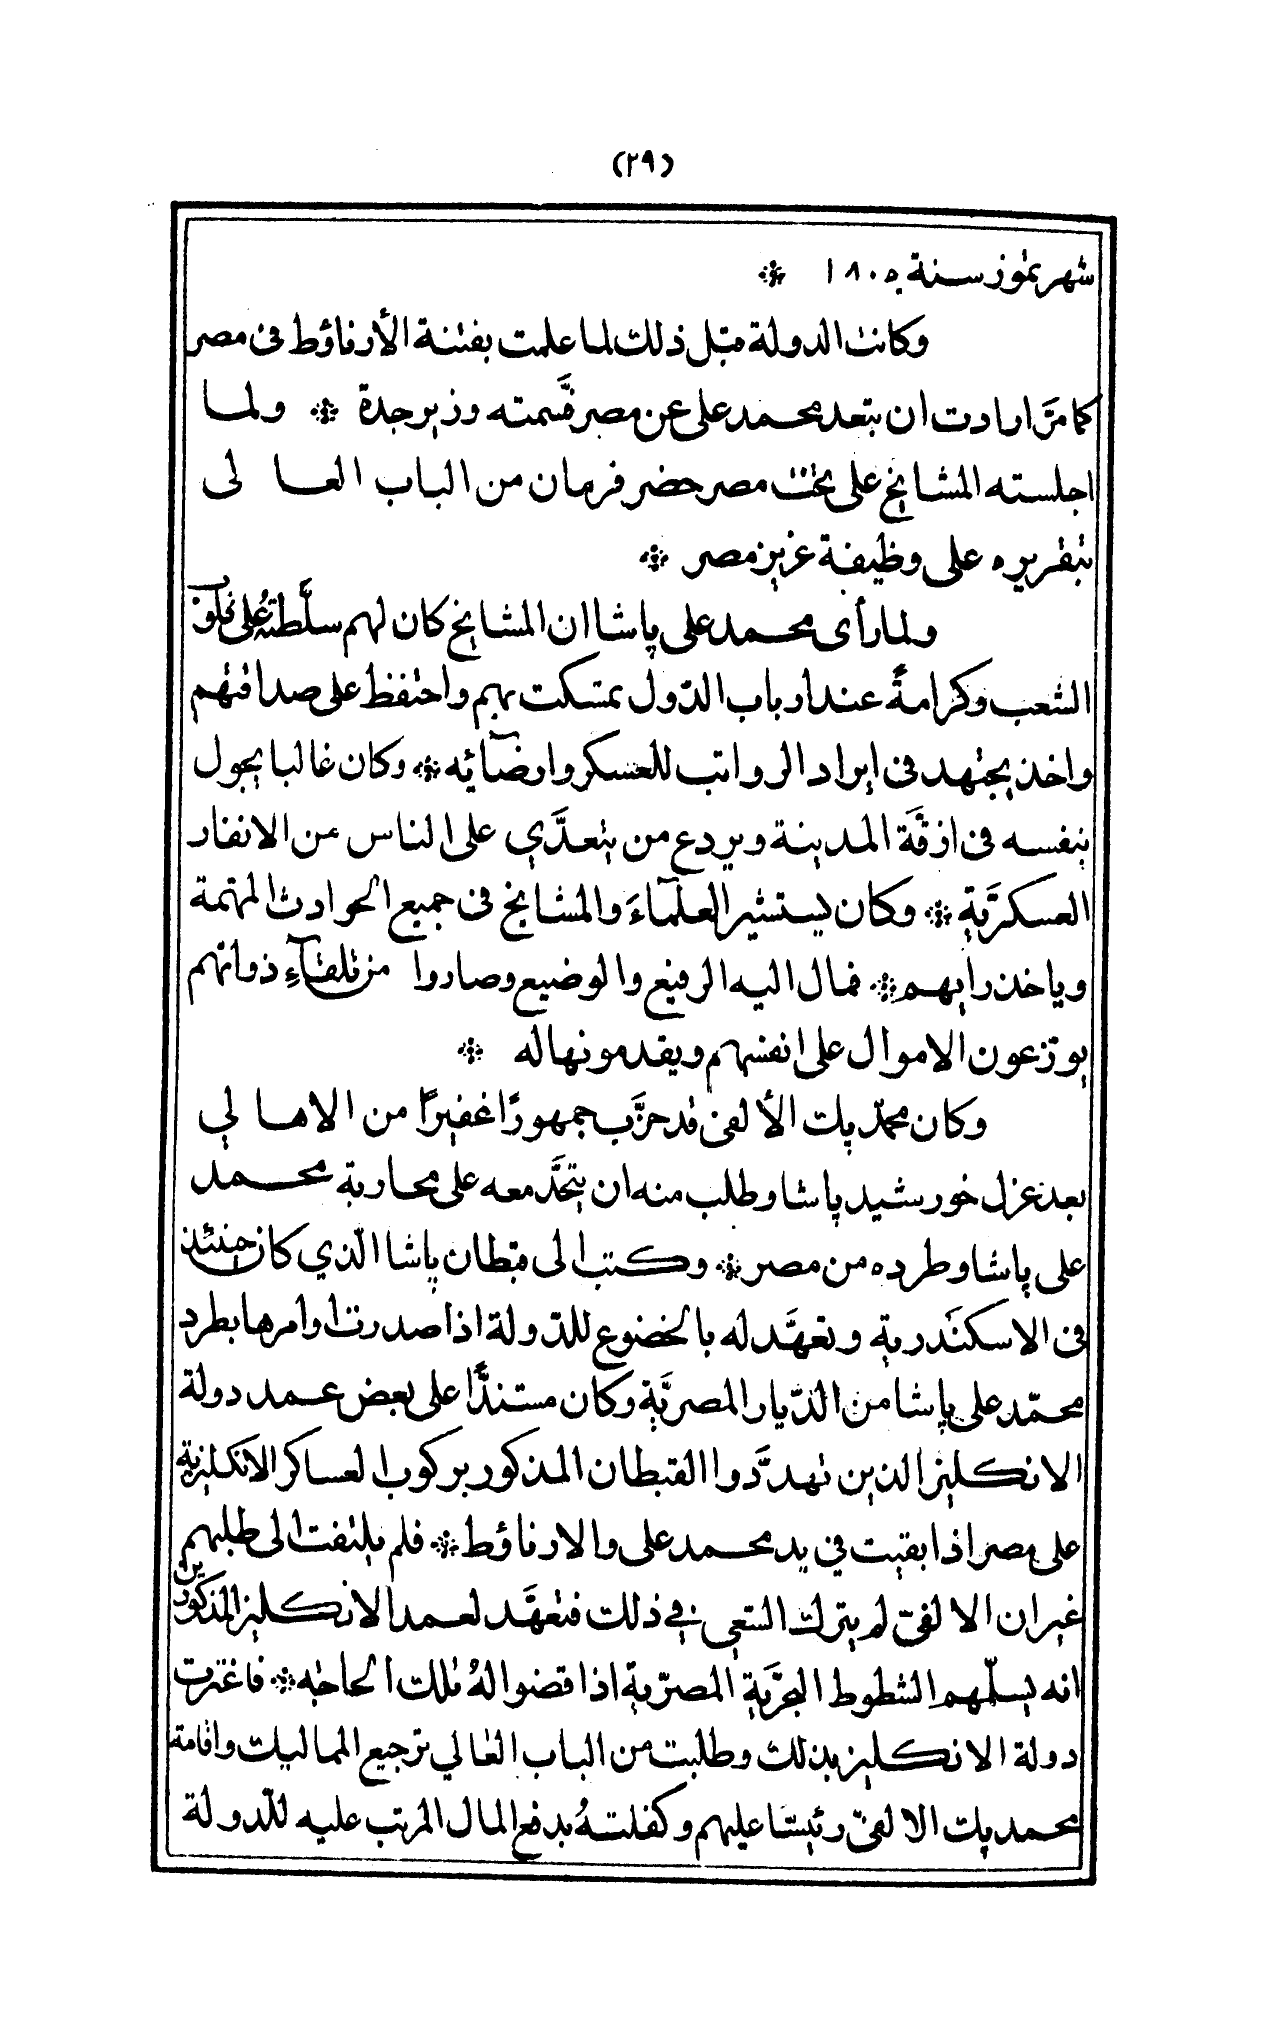 (٢٩)
شهر تموز سنة ١٨٠٥ *
وكانت الدولة قبل ذلك لما علمت بفتنة الأرناؤط في مصر
كما مرَّ ارادت ان تبعد محمد علي عن مصر فسَّمته وزير جدة * ولما
اجلسته المشايخ على تخت مصر حضر فرمان من الباب العالي
بتقريره على وظيفة عزيز مصر *
ولما رأى محمد علي پاشا ان المشايخ كان لهم سلَطة على قلوب
الشعب وكرامةً عند ارباب الدّول تمسكت بهم واحتفظ على صداقتهم
واخذ يجتهد في إيراد الرواتب للعسكر وارضآئه * وكان غالبا يجول
بنفسه في ازقَّة المدينة ويردع من يتعدَّي على الناس من الانفار
العسكريَّة * وكان يستشير العلمآءَ والمشايخ في جميع الحوادث المهمة
وياخذ رايهم * فمال اليه الرفيع والوضيع وصاروا من تلقآءِ ذواتهم
يوزعون الاموال على انفسهم ويقدمونها له *
وكان محمّد بك الألفي قد حزَّب جمهورًا غفيرًا من الاهالي
بعد عزل خورشيد پاشا وطلب منه ان يتَّحد معه على محاربة محمد
علي پاشا وطرده من مصر * وكتب الى قبطان پاشا الّذي كان حينئذ
في الاسكندرية وتعهَّد له بالخضوع للدّولة اذا صدرت اوامرها بطرد
محمّد علي پاشا من الدّيار المصريَّة وكان مستندًا على بعض عمد دولة
الانكليز الذين تهدَّدوا القبطان المذكور بركوب العساكر الانكليزية
على مصر اذا بقيت في يد محمد علي والارناؤط * فلم يلتفت الى طلبهم
غير ان الالفي لم يترك السّعي في ذلك فتعهَّد لعمد الانكليز المذكورين
انه يسلّمهم الشطوط البحريَّة المصريّة اذا قضوا لهُ تلك الحاجه * فاغترت
دولة الانكليز بذلك وطلبت من الباب العالي ترجيع المماليك واقامة
محمد بك الالفيّ رئيسًا عليهم وكفلتهُ بدفع المال المرتب عليه للدّولة